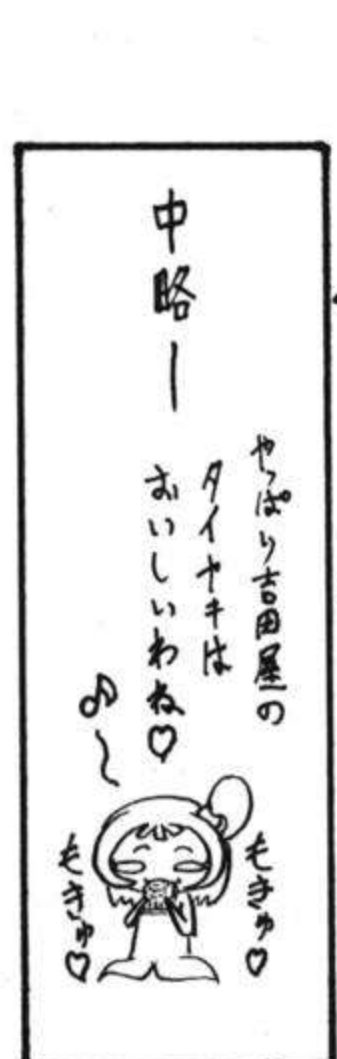 中略ー
やっぱり吉田屋の
タイヤキは
おいしいわね♡
♪〜
もきゅ♡
もきゅ♡